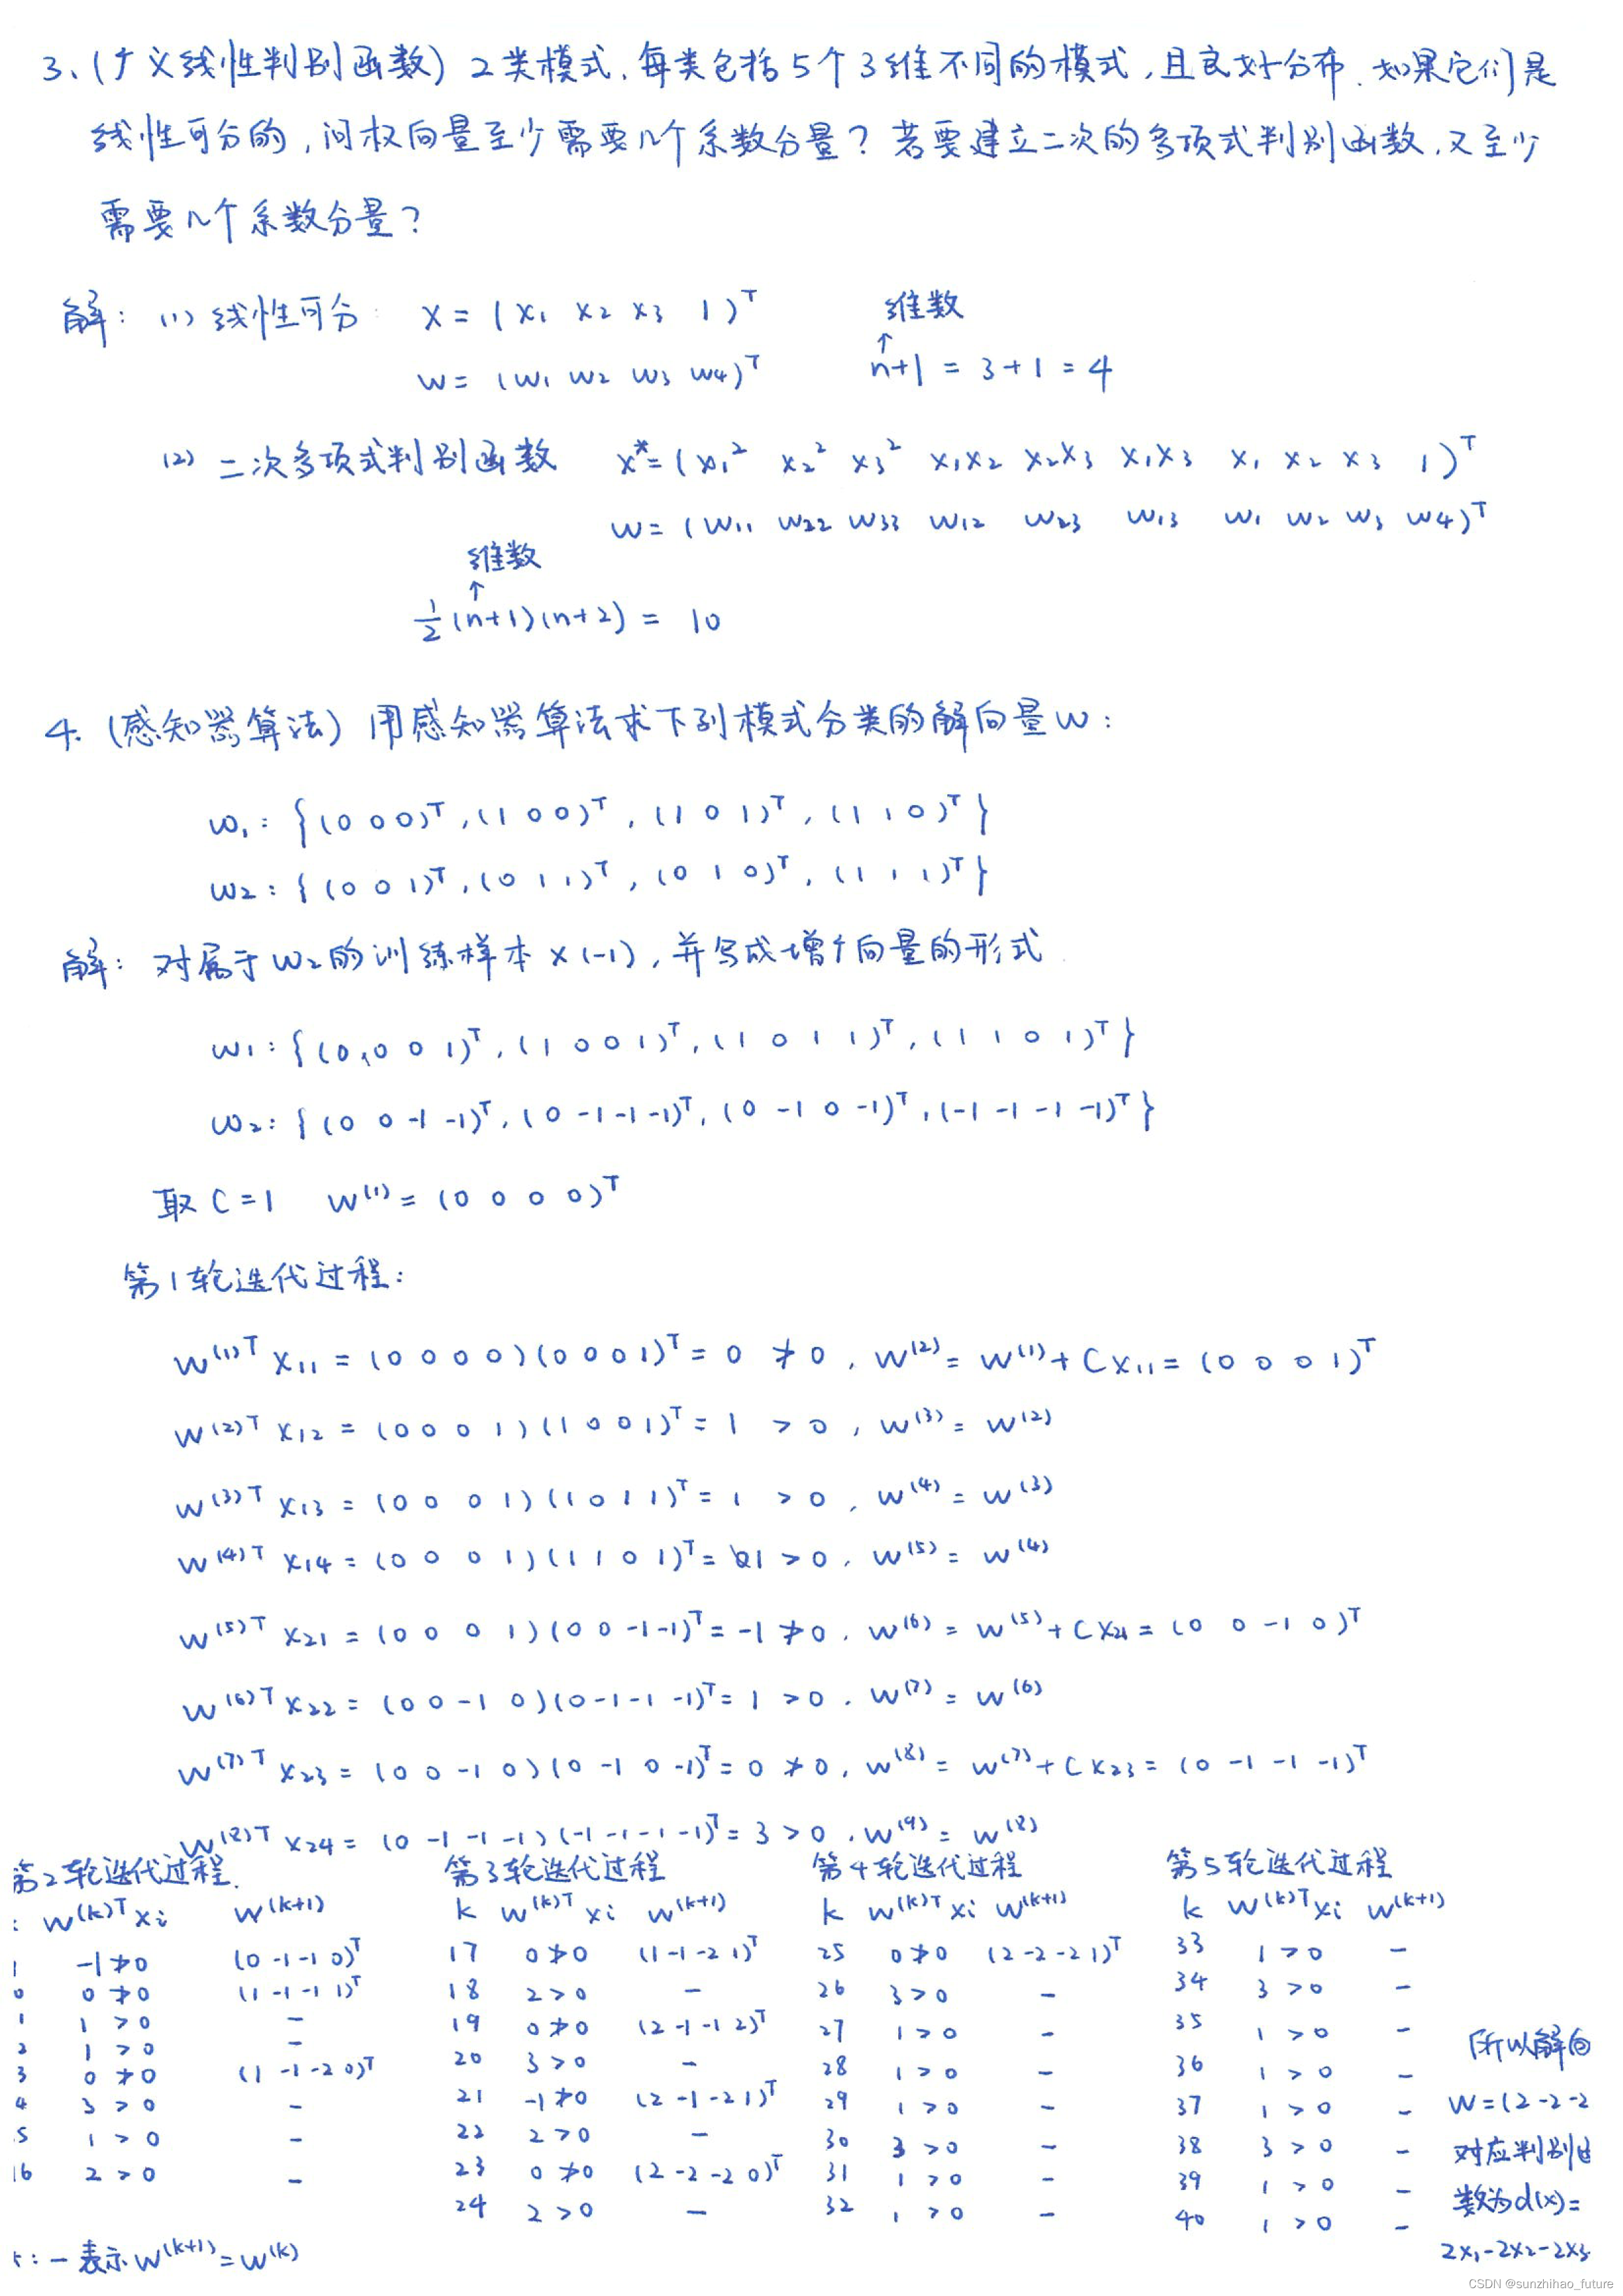 3、(广义线性判别函数) 2类模式,每类包括5个3维不同的模式,且良好分布.如果它们是
线性可分的,问权向量至少需要几个系数分量?若要建立二次的多项式判别函数,又至少
需要几个系数分量?
解: (1) 线性可分: x = (x₁ x₂ x₃ 1)ᵀ 维数
↑
w = (w₁ w₂ w₃ w₄)ᵀ n+1 = 3+1 = 4
(2) 二次多项式判别函数 x* = (x₁² x₂² x₃² x₁x₂ x₂x₃ x₁x₃ x₁ x₂ x₃ 1)ᵀ
w = (w₁₁ w₂₂ w₃₃ w₁₂ w₂₃ w₁₃ w₁ w₂ w₃ w₄)ᵀ
维数
↑
½(n+1)(n+2) = 10
4. (感知器算法) 用感知器算法求下列模式分类的解向量w:
ω₁: {(0 0 0)ᵀ, (1 0 0)ᵀ, (1 0 1)ᵀ, (1 1 0)ᵀ}
ω₂: {(0 0 1)ᵀ, (0 1 1)ᵀ, (0 1 0)ᵀ, (1 1 1)ᵀ}
解: 对属于ω₂的训练样本×(-1),并写成增广向量的形式
ω₁: {(0 0 0 1)ᵀ, (1 0 0 1)ᵀ, (1 0 1 1)ᵀ, (1 1 0 1)ᵀ}
ω₂: {(0 0 -1 -1)ᵀ, (0 -1 -1 -1)ᵀ, (0 -1 0 -1)ᵀ, (-1 -1 -1 -1)ᵀ}
取 C=1 w⁽¹⁾ = (0 0 0 0)ᵀ
第1轮迭代过程:
w⁽¹⁾ᵀ x₁₁ = (0 0 0 0)(0 0 0 1)ᵀ = 0 ≯ 0, w⁽²⁾ = w⁽¹⁾ + Cx₁₁ = (0 0 0 1)ᵀ
w⁽²⁾ᵀ x₁₂ = (0 0 0 1)(1 0 0 1)ᵀ = 1 > 0, w⁽³⁾ = w⁽²⁾
w⁽³⁾ᵀ x₁₃ = (0 0 0 1)(1 0 1 1)ᵀ = 1 > 0, w⁽⁴⁾ = w⁽³⁾
w⁽⁴⁾ᵀ x₁₄ = (0 0 0 1)(1 1 0 1)ᵀ = 1 > 0, w⁽⁵⁾ = w⁽⁴⁾
w⁽⁵⁾ᵀ x₂₁ = (0 0 0 1)(0 0 -1 -1)ᵀ = -1 ≯ 0, w⁽⁶⁾ = w⁽⁵⁾ + Cx₂₁ = (0 0 -1 0)ᵀ
w⁽⁶⁾ᵀ x₂₂ = (0 0 -1 0)(0 -1 -1 -1)ᵀ = 1 > 0, w⁽⁷⁾ = w⁽⁶⁾
w⁽⁷⁾ᵀ x₂₃ = (0 0 -1 0)(0 -1 0 -1)ᵀ = 0 ≯ 0, w⁽⁸⁾ = w⁽⁷⁾ + Cx₂₃ = (0 -1 -1 -1)ᵀ
w⁽⁸⁾ᵀ x₂₄ = (0 -1 -1 -1)(-1 -1 -1 -1)ᵀ = 3 > 0, w⁽⁹⁾ = w⁽⁸⁾
第2轮迭代过程. 第3轮迭代过程 第4轮迭代过程 第5轮迭代过程
: w⁽ᵏ⁾ᵀxᵢ w⁽ᵏ⁺¹⁾ k w⁽ᵏ⁾ᵀxᵢ w⁽ᵏ⁺¹⁾ k w⁽ᵏ⁾ᵀxᵢ w⁽ᵏ⁺¹⁾ k w⁽ᵏ⁾ᵀxᵢ w⁽ᵏ⁺¹⁾
-1≯0 (0 -1 -1 0)ᵀ 17 0≯0 (1 -1 -2 1)ᵀ 25 0≯0 (2 -2 -2 1)ᵀ 33 1>0 -
0 0≯0 (1 -1 -1 1)ᵀ 18 2>0 - 26 3>0 - 34 3>0 -
1 1>0 - 19 0≯0 (2 -1 -1 2)ᵀ 27 1>0 - 35 1>0 -
2 1>0 - 20 3>0 - 28 1>0 - 36 1>0 -
3 0≯0 (1 -1 -2 0)ᵀ 21 -1≯0 (2 -1 -2 1)ᵀ 29 1>0 - 37 1>0 -
4 3>0 - 22 2>0 - 30 3>0 - 38 3>0 -
5 1>0 - 23 0≯0 (2 -2 -2 0)ᵀ 31 1>0 - 39 1>0 -
16 2>0 - 24 2>0 - 32 1>0 - 40 1>0 -
所以解向
w = (2 -2 -2
对应判别
数为d(x)=
2x₁-2x₂-2x₃
: - 表示w⁽ᵏ⁺¹⁾ = w⁽ᵏ⁾
CSDN @sunzhihao_future